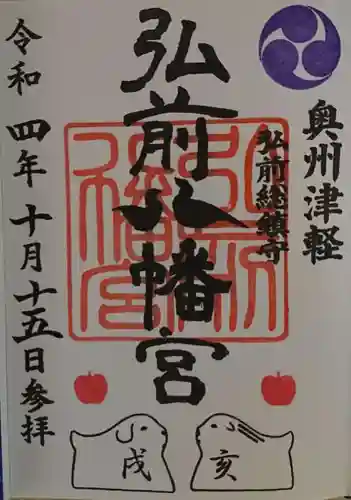 奥州津軽
弘前総鎮守
弘前八幡宮
令和四年十月十五日参拝
戌
亥